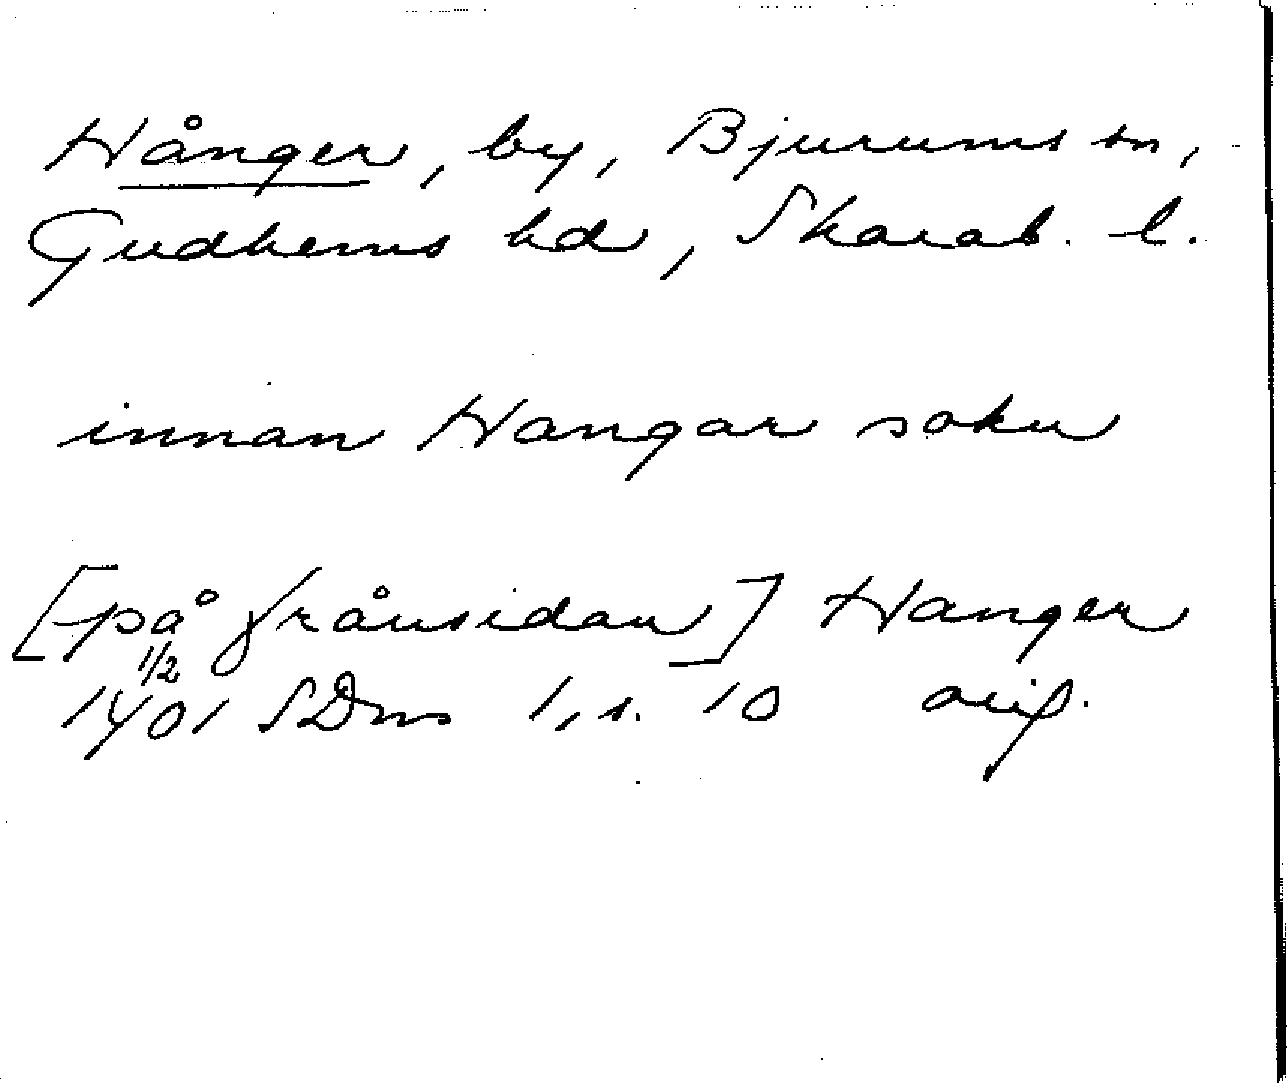 Hånger, by, Bjurums sn,
Gudhems hd, Skarab. l.
innan Hangar sokn
[på frånsidan] Hanger
1/2
1401 SDns 1, s. 10 orig.